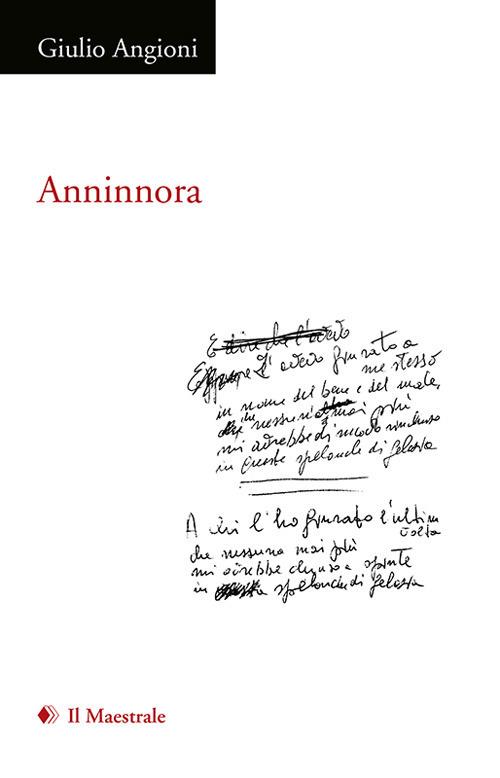 Giulio Angioni
Anninnora
E dire che l'avevo
Eppure l'avevo giurato a
me stesso
in nome del bene e del male,
che in nessun mai più
mi avrebbe di nuovo rinchiuso
in queste spelonche di gelosia
A lei l'ho giurato l'ultima
volta
che nessuna mai più
mi avrebbe chiuso a spinte
in spelonche di gelosia
Il Maestrale